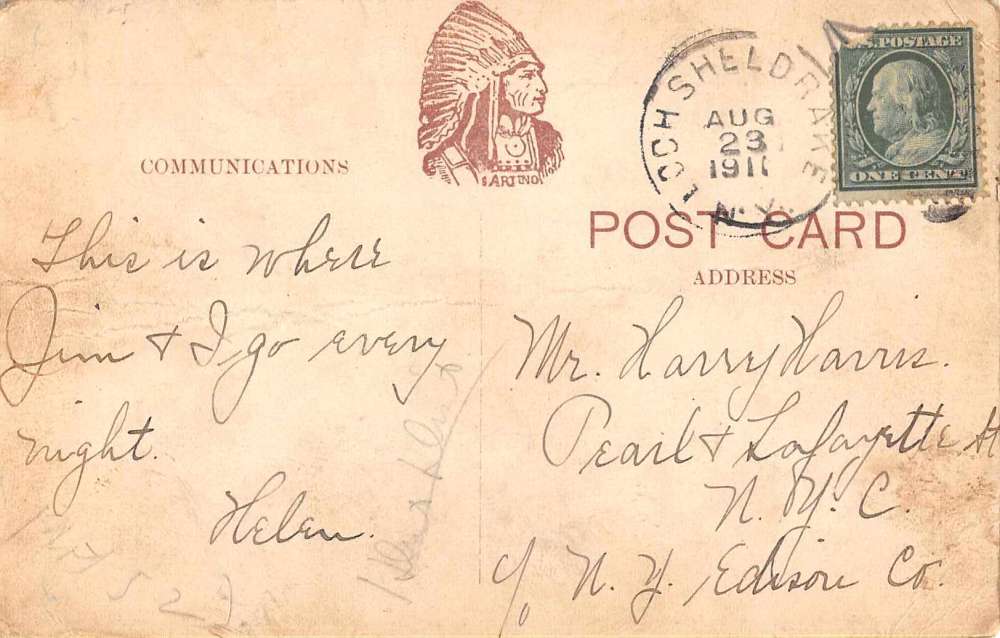 COMMUNICATIONS
ARTINO
LOCH SHELDRAKE
AUG
23
1911
N.Y.
U.S. POSTAGE
ONE CENT
POST CARD
ADDRESS
This is where
Jim & I go every
night.
Helen.
Mr. Harry Harris.
Pearl & Lafayette St
N. Y. C.
c/o N. Y. Edison Co.